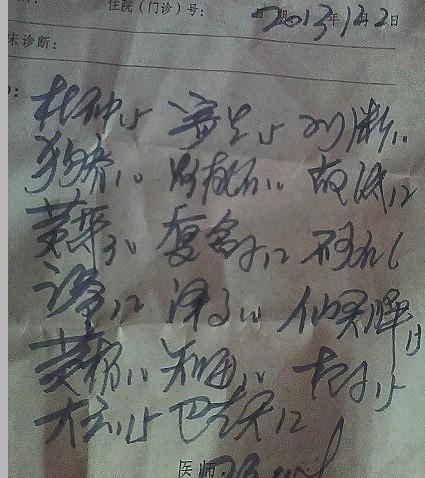 住院(门诊)号: 期 2013年12月2日
床诊断:
杜仲15 寄生15 川断10
狗脊10 故纸12
黄芪30 覆盆子12
云苓12 泽泻10 仙灵脾15
黄柏10 知母10 杞子15
大云15 巴戟天12
医师: